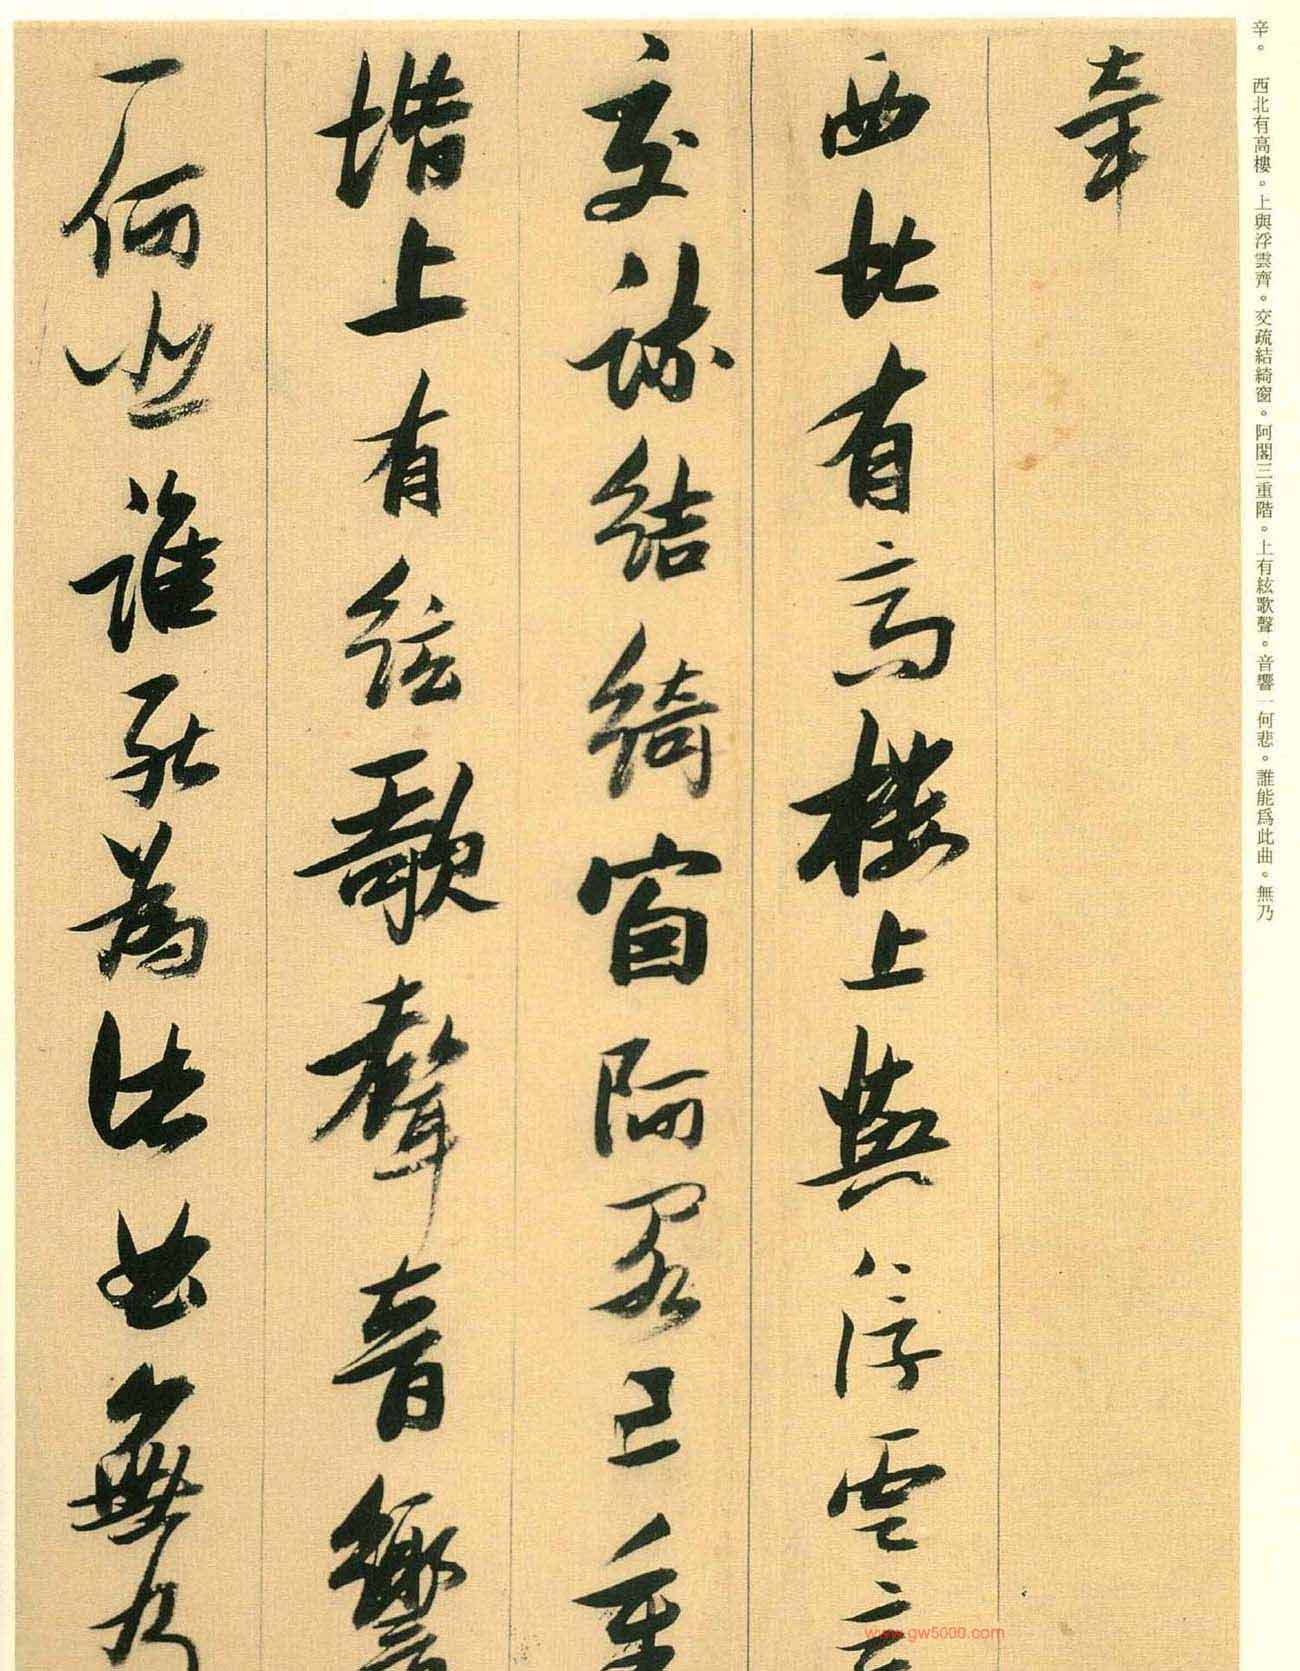 辛。　西北有高樓。上與浮雲齊。交疏結綺窗。阿閣三重階。上有絃歌聲。音響一何悲。誰能爲此曲。無乃
辛
西北有高樓上與浮雲齊
交疏結綺窗阿閣三重
階上有絃歌聲音響
一何悲誰能為此曲無乃
www.gw5000.com